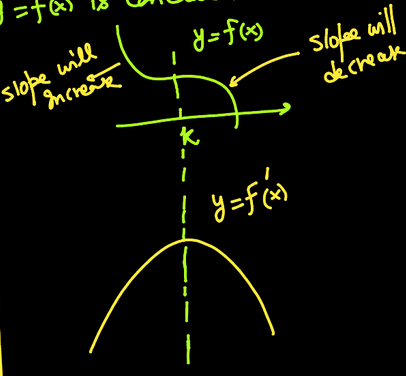 = f(x) is
y = f(x)
slope will
increase
slope will
decrease
K
y = f'(x)